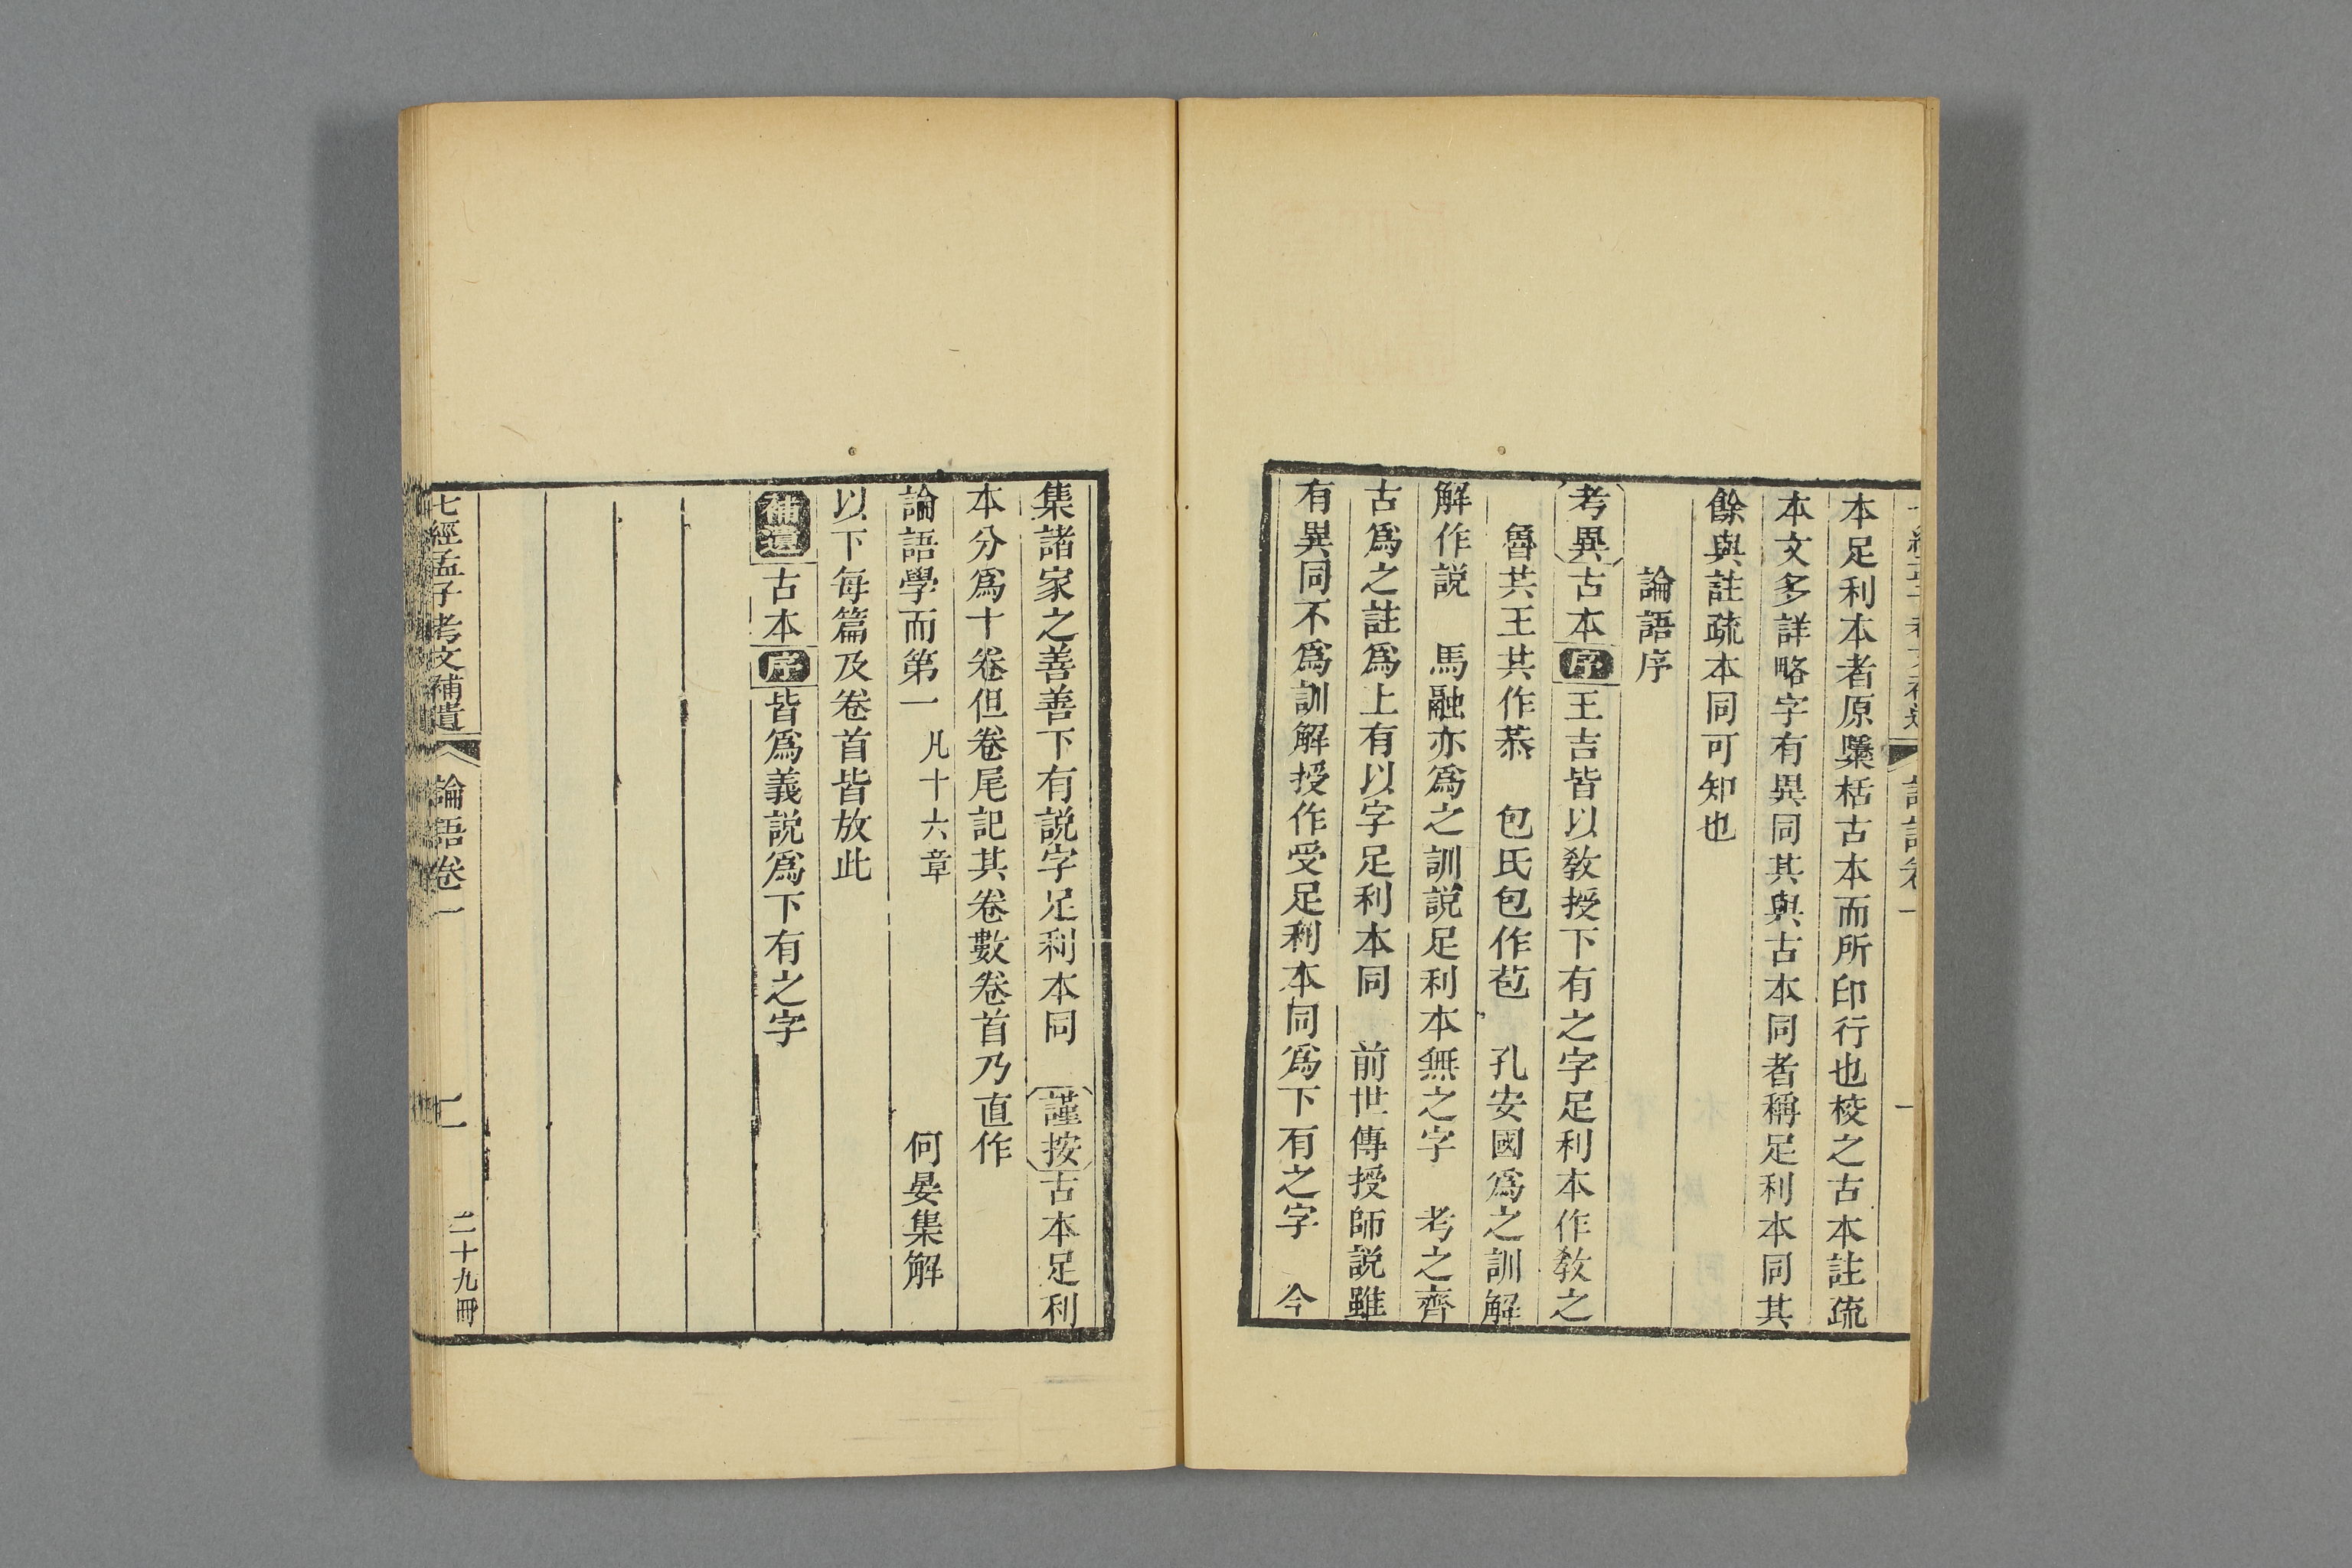 本足利本者原檃栝古本而所印行也校之古本註疏
本文多詳略字有異同其與古本同者稱足利本同其
餘與註疏本同可知也
論語序
考異古本序王吉皆以敎授下有之字足利本作敎之
魯共王共作恭　包氏包作苞　孔安國爲之訓解
解作説　馬融亦爲之訓説足利本無之字　考之齊
古爲之註爲上有以字足利本同　前世傳授師説雖
有異同不爲訓解授作受足利本同爲下有之字　今
集諸家之善善下有説字足利本同　謹按古本足利
本分爲十卷但卷尾記其卷數卷首乃直作
論語學而第一凡十六章　何晏集解
以下每篇及卷首皆放此
補遺古本序皆爲義説爲下有之字
七經孟子考文補遺　論語卷一　二　二十九冊